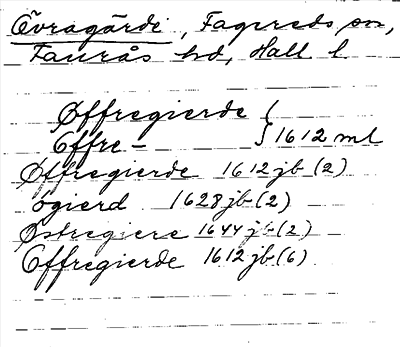 Övragärde, Fagereds sn,
Faurås hd, Hall l
Øffregierde }
Offre - } 1612 ml
Øffregierde 1612 jb (2)
ögierd 1628 jb (2)
Østregiere 1644 jb (2)
Offregierde 1612 jb (6)